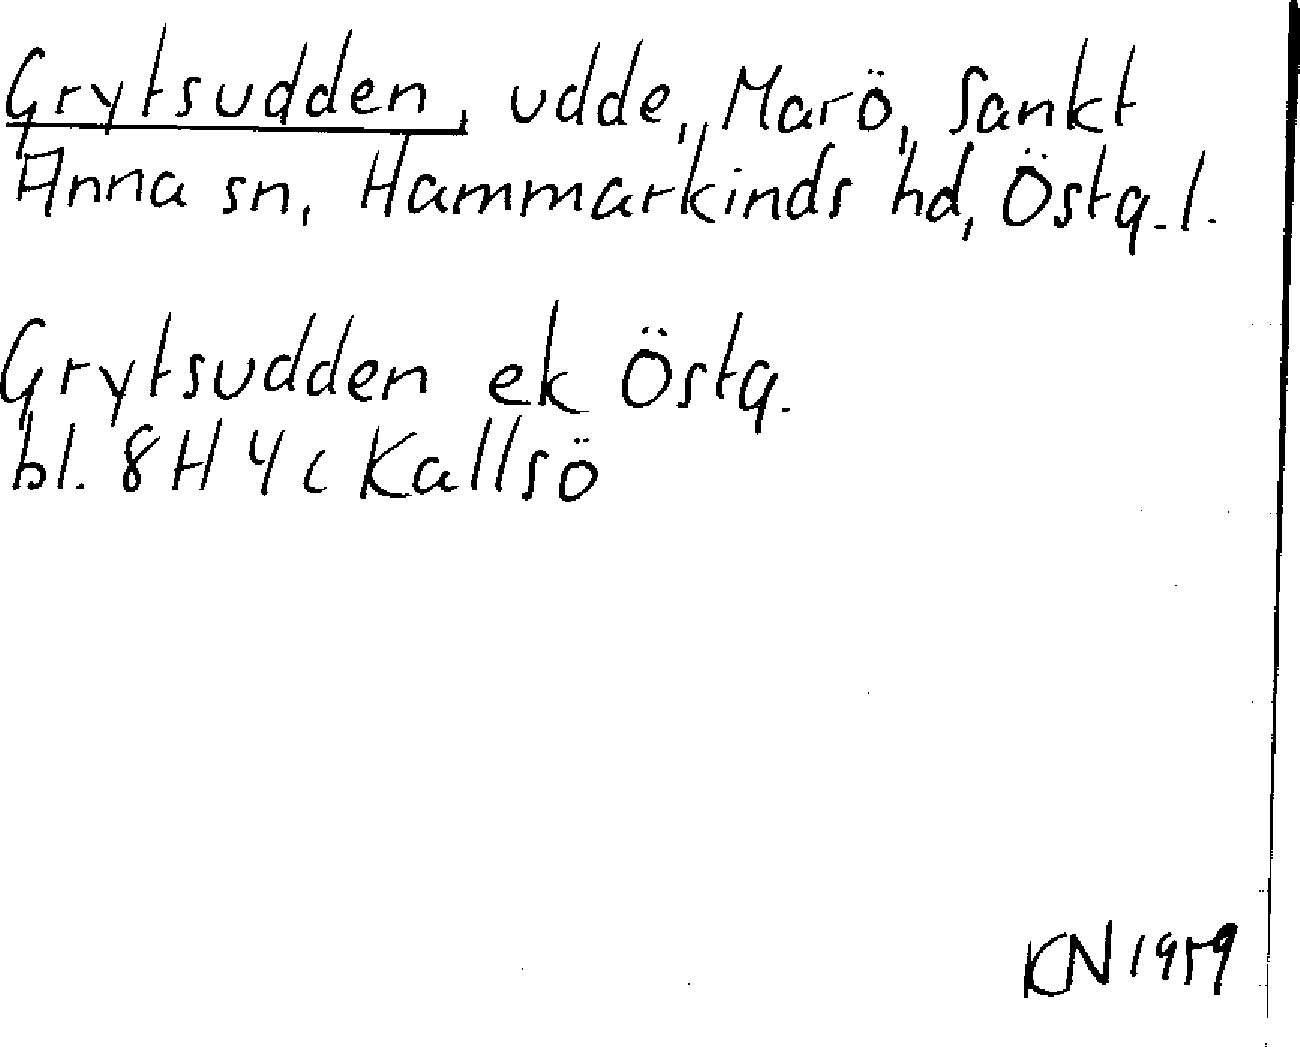 Grytsudden, udde, Marö, Sankt
Anna sn, Hammarkinds hd, Östg. l.
Grytsudden ek Östg.
bl. 8H 4c Kallsö
KN 1959